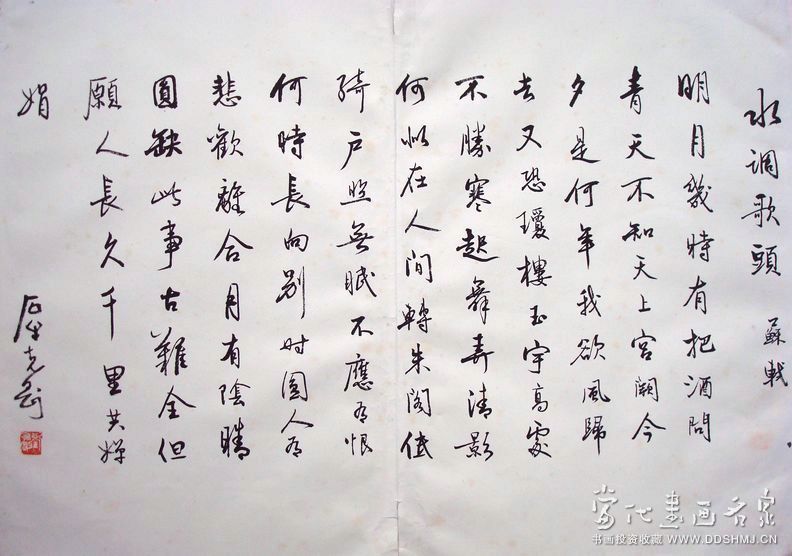 水調歌頭 蘇軾
明月幾時有把酒問
青天不知天上宮闕今
夕是何年我欲風歸
去又恐瓊樓玉宇高處
不勝寒起舞弄清影
何似在人間轉朱閣低
綺户照無眠不應有恨
何時長向别时圆人有
悲歡離合月有陰晴
圓缺此事古難全但
願人長久千里共嬋
娟
当代書画名家
书画投资收藏 WWW.DDSHMJ.CN